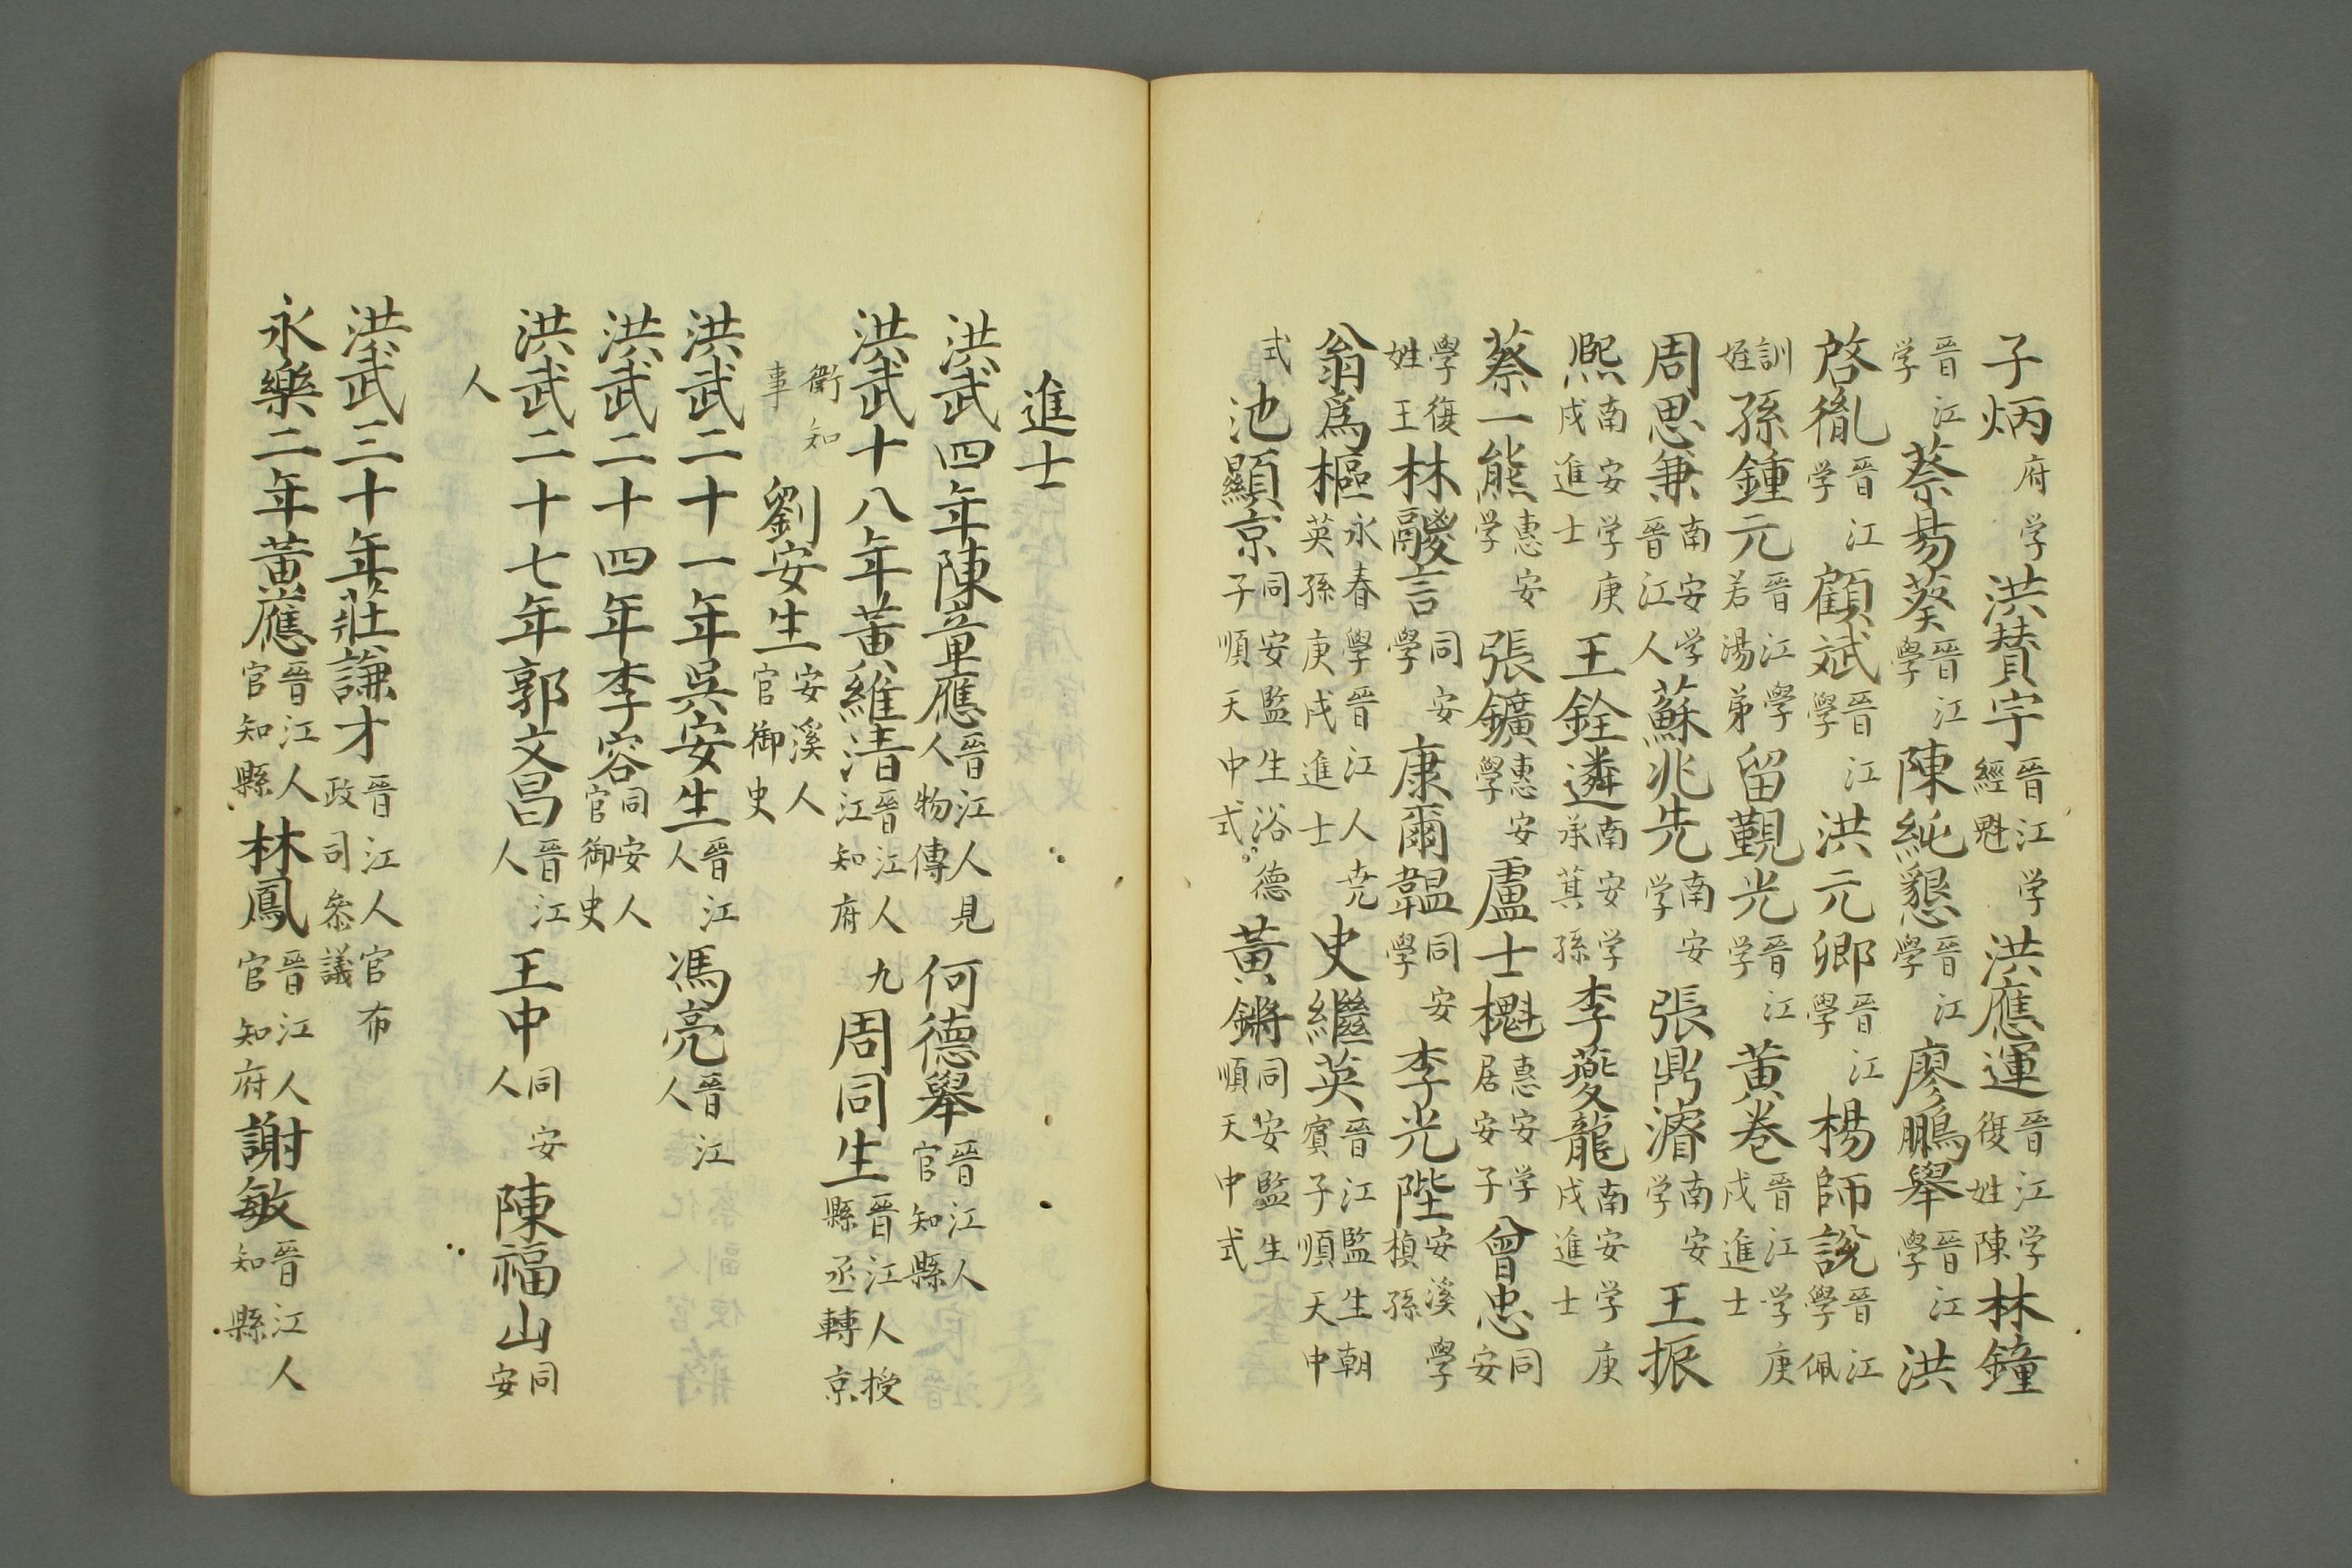 子炳府学洪賛宇晉江学經魁洪應運晉江学復姓陳林鐘
晉江学蔡昜葵晉江學陳純懇晉江學廖鵬舉晉江學洪
啓胤晉江学顧斌晉江學洪元卿晉江學楊師說晉江學佩
訓姪孫鍾元晉江學若湯弟留觀光晉江学黃卷晉江学庚戌進士
周思兼南安学晉江人蘇兆先南安学張鼎濬南安学王振
熈南安学庚戌進士王銓遴南安学承萁孫李夔龍南安学庚戌進士
蔡一熊惠安学張鑛惠安學盧士櫆惠安学居安子曾忠同安
學復姓王林鬷言同安學康爾韞同安學李光陛安溪學楨孫
翁爲樞永春學晉江人尭英孫庚戌進士史繼英晉江監生朝賓子順天中
式池顯京同安監生浴德子順天中式黃鏘同安監生順天中式
進士
洪武四年陳童應晉江人見人物傳何德舉晉江人官知縣
洪武十八年黃維清晉江人江知府九周同生晉江人授縣丞轉京
衛知事劉安生安溪人官御史
洪武二十一年吳安生晉江人馮亮晉江人
洪武二十四年李容同安人官御史
洪武二十七年郭文昌晉江人王中同安人陳福山同安
人
洪武三十年莊謙才晉江人官布政司叅議
永樂二年黃應晉江人官知縣林鳳晉江人官知府謝敏晉江人知縣